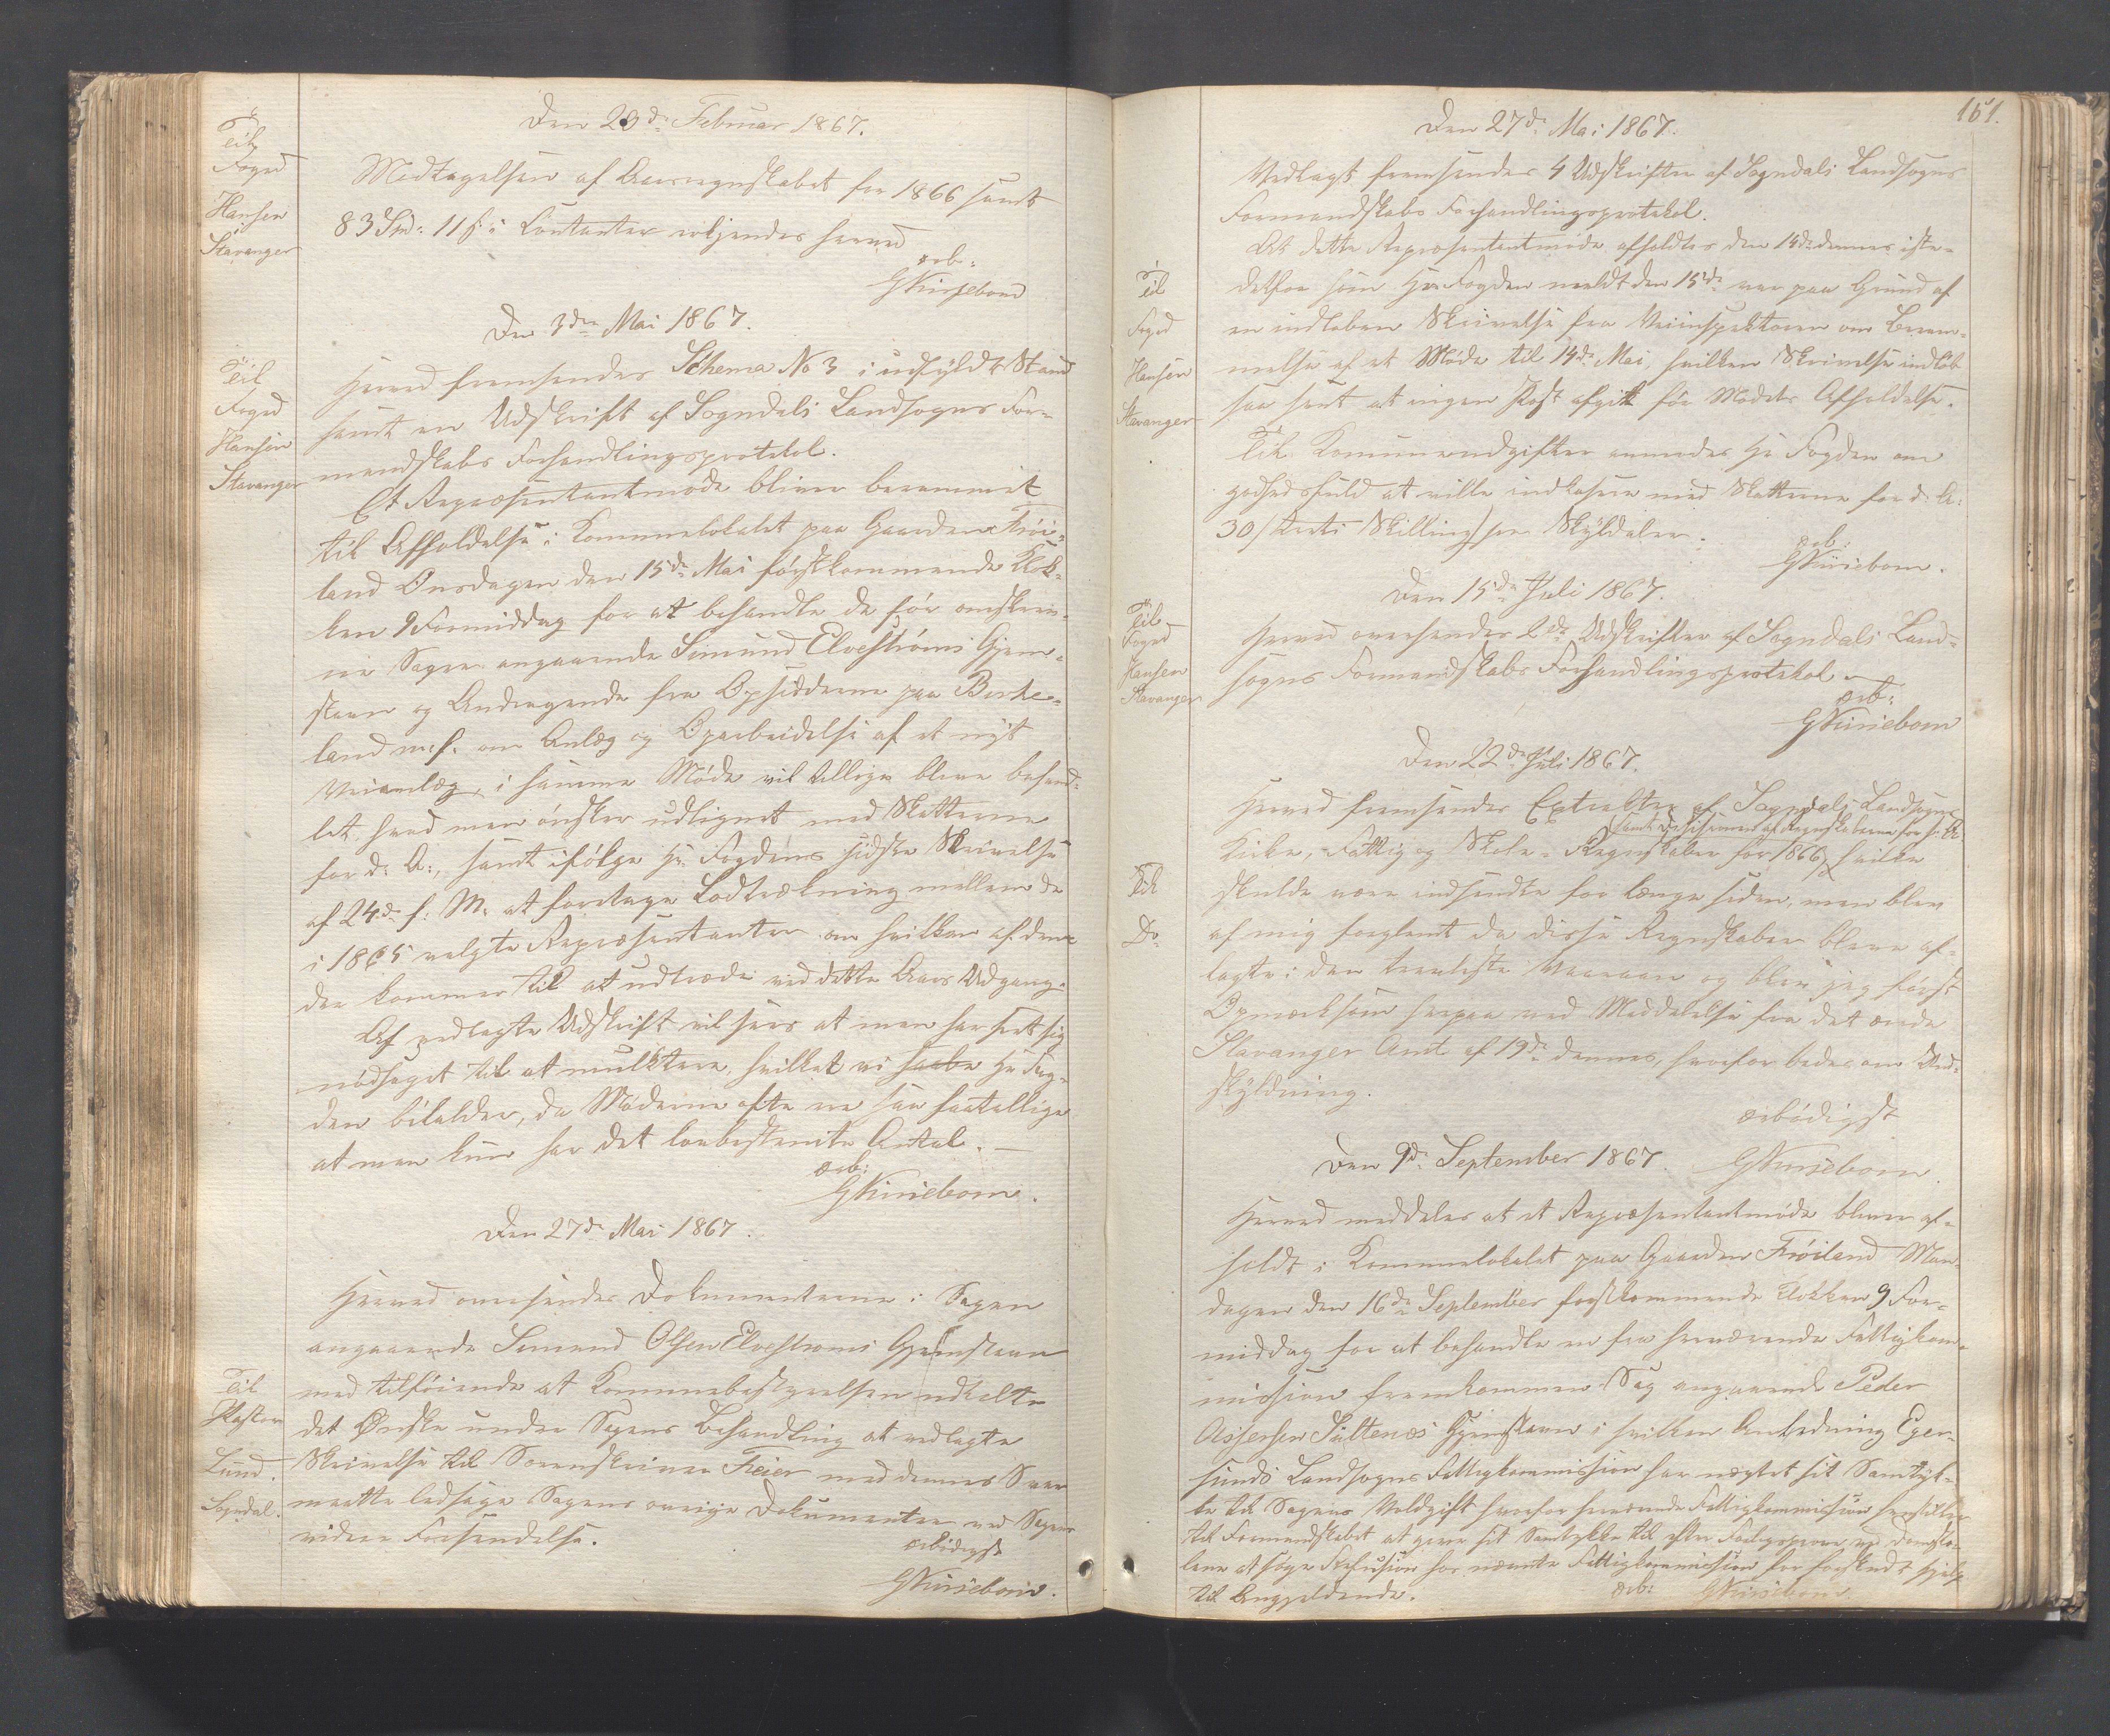 Den 20de Februar 1867.
Til
Foged
Hansen
Stavanger
Modtagelsen af Aarsregnskabet for 1866 samt
83 Spd: 11 s i Contanter erkjendes herved
ærb:
GKirsebom
Den 3die Mai 1867.
Til
Foged
Hansen
Stavanger
Herved fremsendes Schema No 3 i udfyldt Stand
samt en Udskrift af Sogndals Landsogns For-
mandskabs Forhandlingsprotokol.
Et Repræsentantmøde bliver berammet
til Afholdelse i Kommunelokalet paa Gaarden Frøi-
land Onsdagen den 15de Mai førstkommende Klok-
ken 9 Formiddag for at behandle de før omskrev-
ne Sager angaaende Simund Elvestrøms Gjen-
stavn og Andragende fra Opsidderne paa Birke-
land m: fl. om Anlæg og Oparbeidelse af et nyt
Veianlæg, i samme Møde vil tillige blive behand-
let hvad man ønsker udlignet med Skatterne
for d: A:, samt ifølge Hr Fogdens sidste Skrivelse
af 24de f: M: at foretage Lodtrækning mellem de
i 1865 valgte Repræsentanter om hvilken af dem
der kommer til at udtræde ved dette Aars Udgang.
Af vedlagte Udskrift vil sees at man har seet sig
nødsaget til at mulktere, hvilket vi haabe Hr Fog-
den bifalder, da Møderne ofte ere saa faatallige
at man kun har det lovbestemte Antal. —
ærb:
GKirsebom.
Den 27de Mai 1867.
Til
Pastor
Lund.
Sogndal.
Herved oversendes Dokumenterne i Sagen
angaaende Simund Olsen Elvestrøms Gjenstavn
med tilføiende at Kommunebestyrelsen udtalte
det Ønske under Sagens Behandling at vedlagte
Skrivelse til Sorenskriver Feier med dennes Svar
maatte ledsage Sagens øvrige Dokumenter ved Sagens
videre Forsendelse.
ærbødigst
GKirsebom.
161.
Den 27de Mai 1867.
Til
Foged
Hansen
Stavanger
Vedlagt fremsendes 4 Udskrifter af Sogndals Landsogns
Formandskabs Forhandlingsprotokol.
At dette Repræsentantmøde afholdtes den 14de dennes iste-
detfor som Hr Fogden meldt den 15de var paa Grund af
en indløben Skrivelse fra Veiinspektøren om Beram-
melse af et Møde til 14de Mai, hvilken Skrivelse indløb
saa sent at ingen Post afgik før Mødets Afholdelse.
Til Kommuneudgifter anmodes Hr Fogden om
godhedsfuld at ville indkassere med Skatterne for d: A:
30/ treti Skilling/ pr Skylddaler.
ærb:
GKirsebom.
Den 15de Juli 1867.
Til
Foged
Hansen
Stavanger
Herved oversendes 2de Udskrifter af Sogndals Land-
sogns Formandskabs Forhandlingsprotokol —
ærb:
GKirsebom
Den 22de Juli 1867.
Til
Do
Herved fremsendes Extrakter af Sogndals Landsogns
(samt Decisionen af Regnskaberne for f: A:
Kirke, - Fattig og Skole - Regnskaber for 1866) hvilke
skulde være indsendte for længe siden, men blev
af mig forglemt da disse Regnskaber bleve af-
lagte i den travleste Vaaraan og blev jeg først
Opmærksom herpaa ved Meddelelse fra det ærede
Stavanger Amt af 19de dennes, hvorfor bedes om Und-
skyldning.
ærbødigst
GKirsebom.
Den 9de September 1867.
Herved meddeles at et Repræsentantmøde bliver af-
holdt i Kommunelokalet paa Gaarden Frøiland Man-
dagen den 16de September førstkommende Klokken 9 For-
middag for at behandle en fra herværende Fattigkom-
mission fremkommen Sag angaaende Peder
Assersen Sultenæs Gjenstavn i hvilken Anledning Eger-
sunds Landsogns Fattigkommission har nægtet sit Samtyk-
ke til Sagens Voldgift hvorfor herværende Fattigkommission henstiller
til Formandskabet at give sit Samtykke til efter Forligsprøve ved Domsto-
lene at søge Refusion hos nævnte Fattigkommission for forskudt Hjelp
til Angjeldende.
ærb:
GKirsebom.